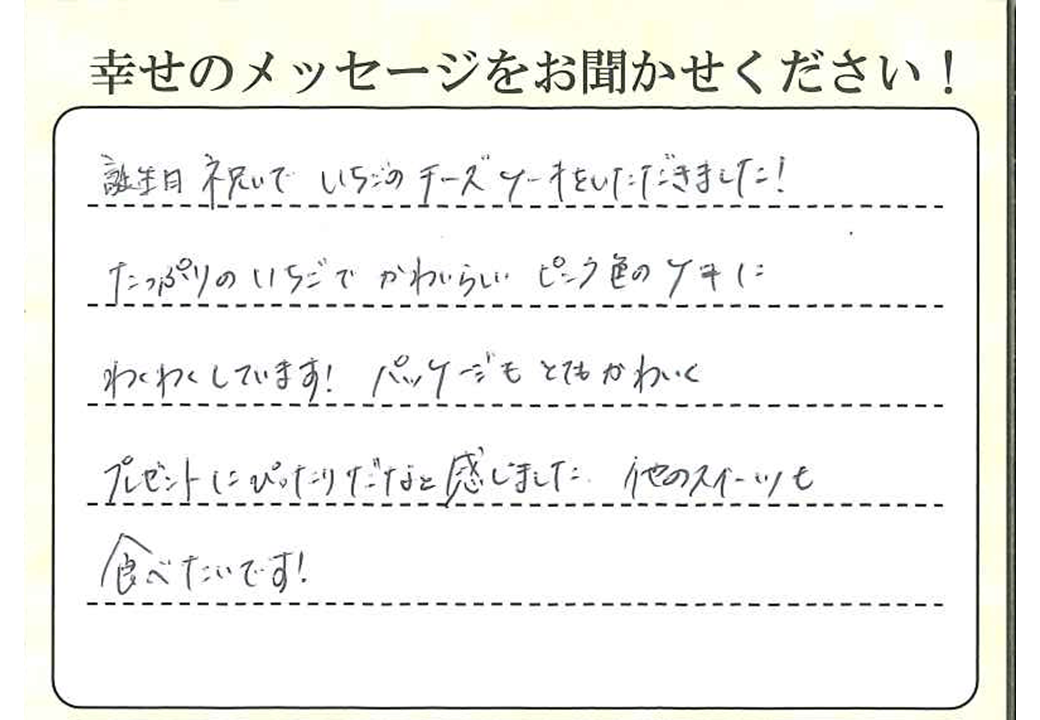 幸せのメッセージをお聞かせください！
誕生日祝いで いちごのチーズケーキをいただきました！
たっぷりのいちごで かわいらしい ピンク色のケーキに
わくわくしています！ パッケージも とてもかわいく
プレゼントにぴったりだなと感じました 他のスイーツも
食べたいです！